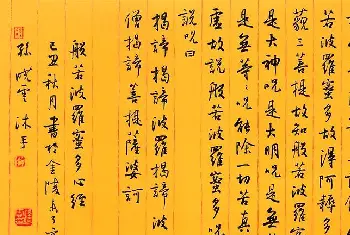 若波羅蜜多故得阿耨多
藐三菩提故知般若波羅蜜
是大神呪是大明呪是無
是無等々呪能除一切苦真
虛故說般若波羅蜜多
說呪曰
揭諦揭諦波羅揭諦波
僧揭諦菩提薩婆訶
般若波羅蜜多心經
己丑秋月書於金陵
孫曉雲沐手